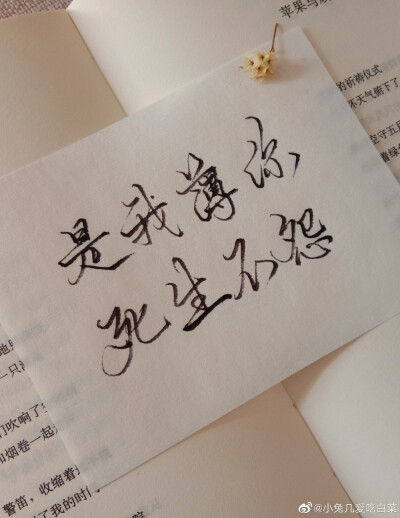 苹果与
的祈祷仪式
坏天气俯下了
空守五月
是我薄你
死生不怨
地
一只
们吹响了
和烟卷一起
警笛，收缩着
了我的时
@小兔几爱吃白菜